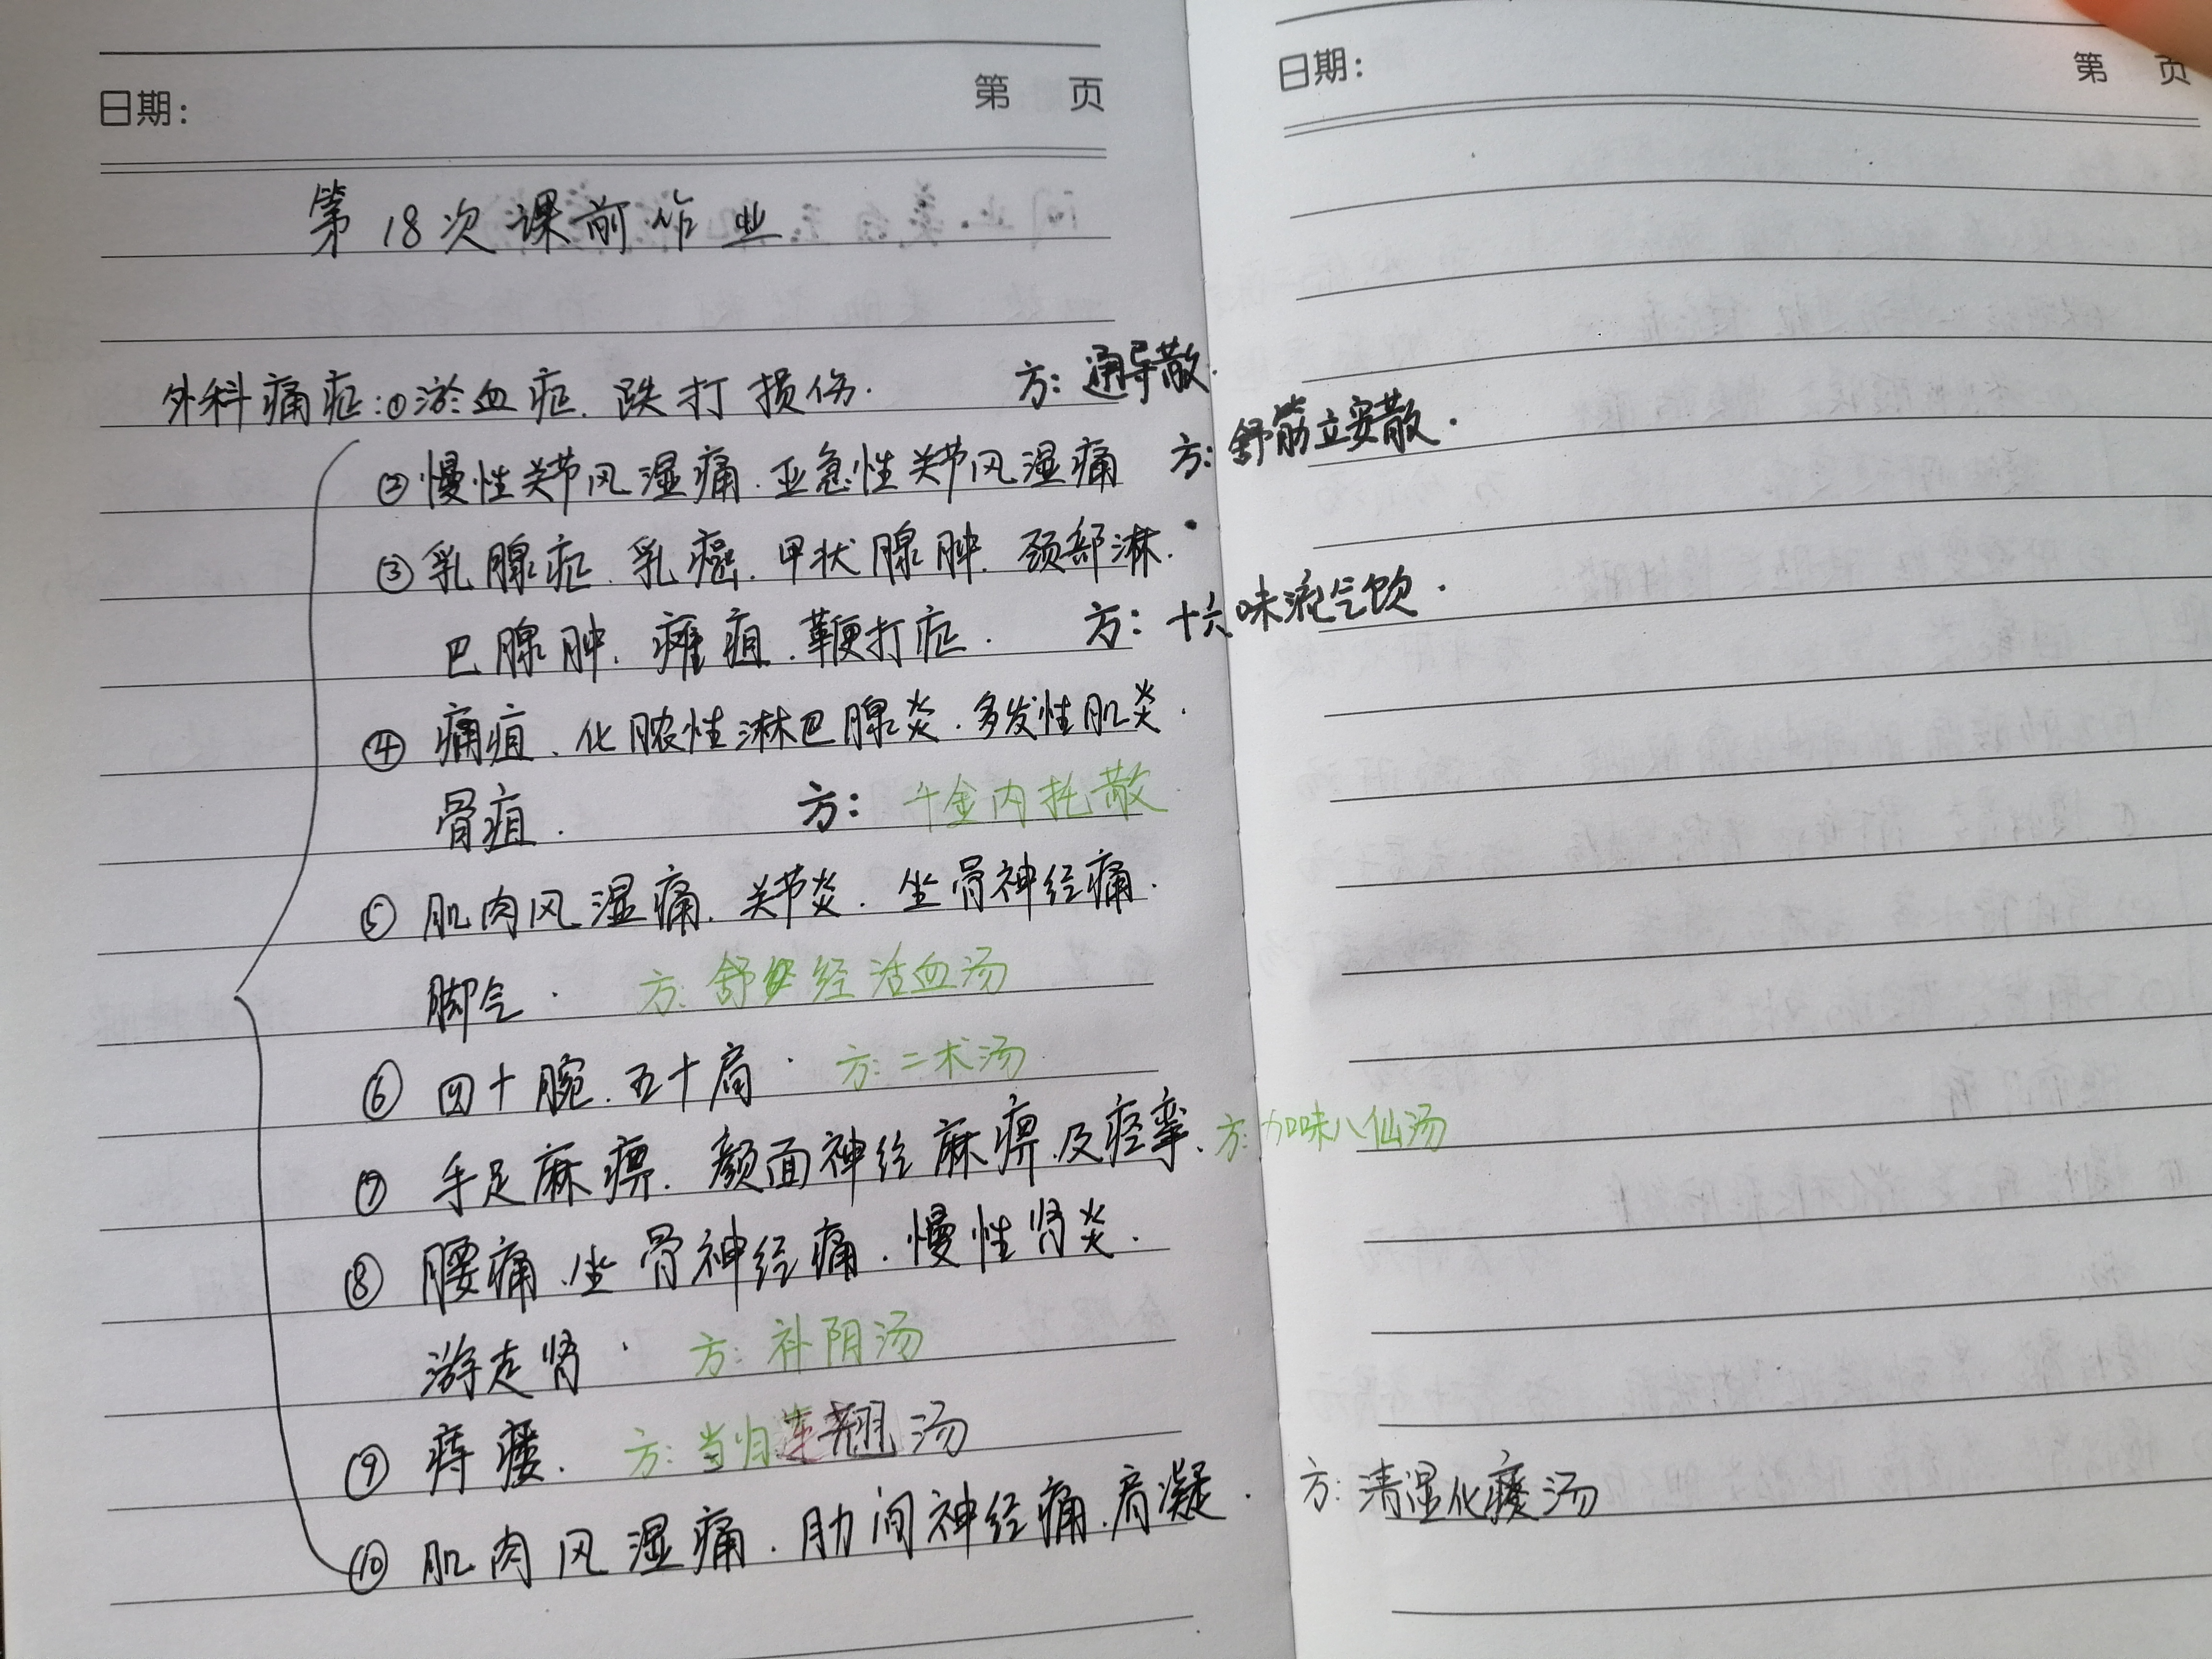 日期： 第 页
日期： 第 页
第18次课前作业
外科痛症：①淤血症、跌打损伤. 方：通导散.
②慢性关节风湿痛.亚急性关节风湿痛 方：舒筋立安散.
③乳腺症、乳癌、甲状腺肿、颈部淋.
巴腺肿、瘫疽、鞭打症. 方：十六味流气饮.
④痈疽、化脓性淋巴腺炎.多发性肌炎.
骨疽. 方：千金内托散
⑤肌肉风湿痛、关节炎.坐骨神经痛.
脚气. 方：舒经活血汤
⑥四十腕.五十肩. 方：二术汤
⑦手足麻痹.颜面神经麻痹及痉挛. 方：加味八仙汤
⑧腰痛.坐骨神经痛.慢性肾炎.
游走肾. 方：补阴汤
⑨痔瘘. 方：当归连翘汤
⑩肌肉风湿痛.肋间神经痛.肩凝. 方：清湿化痰汤